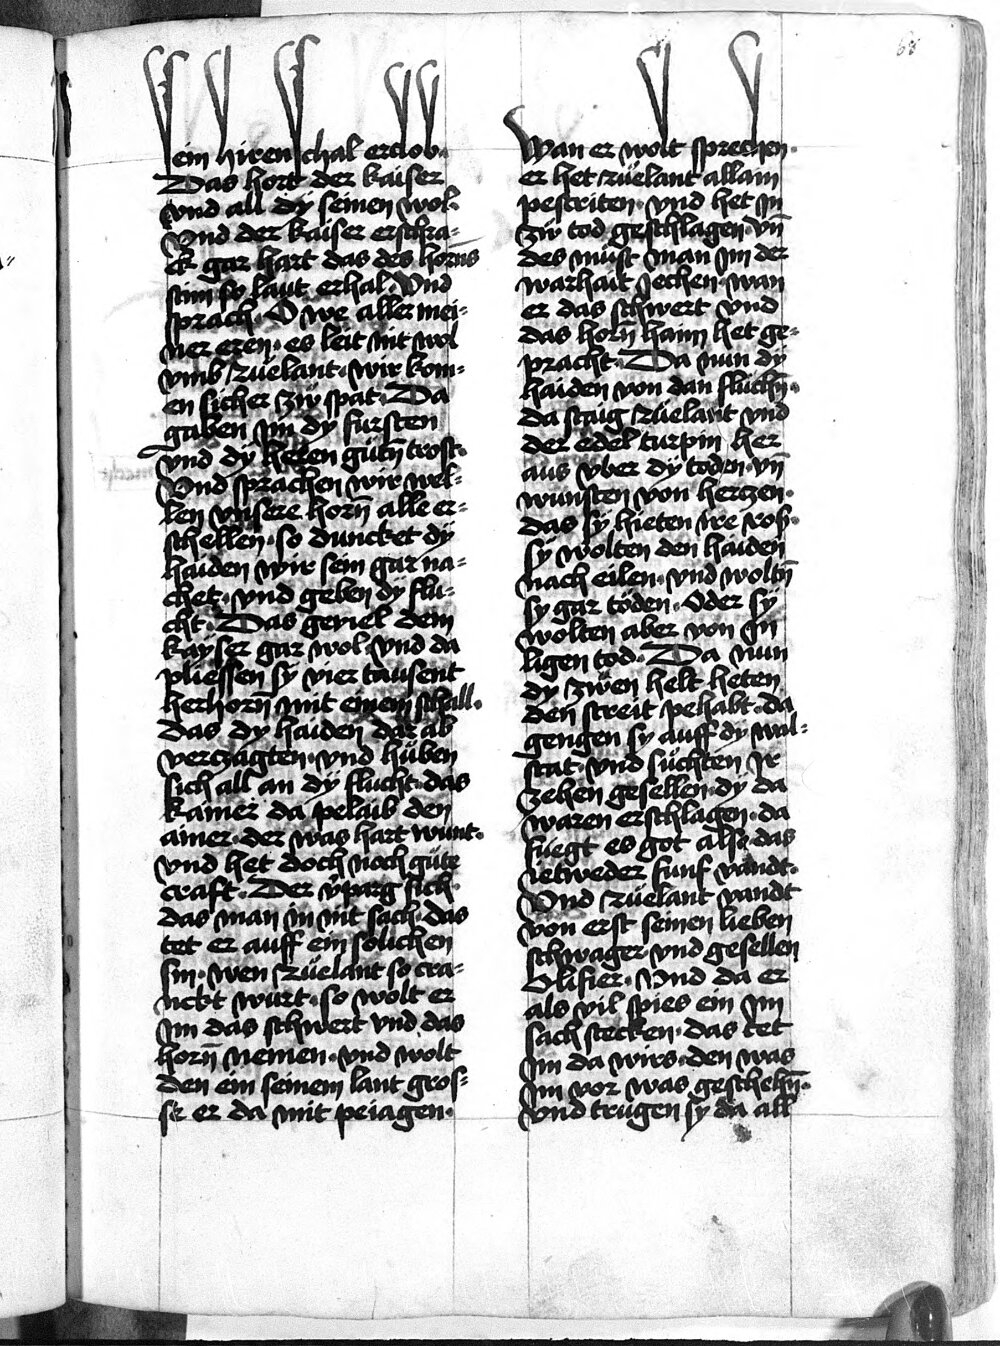 68
sein hirenschal erclob·
Das hort der kaiser
vnd all dy seinen wol·
Vnd der kaiser erschra-
ck gar hart das des horns
stim so laut erhal· Vnd
sprach· O we aller mei-
ner eren· es leit nit wol
vmb Rüelant· wir kom-
en sicher zw spat· Da
gaben im dy fursten
vnd dy heren gütn̄ trost·
Vnd sprachen wir wel-
len vnsere horn̄ alle er-
schellen· so duncket dy
haiden wir sein gar na-
chet· vnd geben dy flu-
cht· Das geviel dem
kayser gar wol· vnd da
pliessen sy vier tausent
herhorn̄ mit einem schall·
das dy haiden dar ab
verczagten· vnd hüben
sich all an dy flucht· das
kainer da pelaib den
ainer· der was hart wunt·
vnd het doch noch güte
craft· Der v̈parg sich
das man in nit sach· das
tet er auff ein solichen
sin· wen Rüelant so cra-
nckt wurt· so wolt er
im das schwert vnd das
horn̄ nemen· vnd wolt
den ein seinem lant gros-
se er da mit peiagen·
Wan er wolt sprechen·
er het Rüelant allain
pestriten· vnd het in
zw tod geschlagen· vn̄
des must man im der
warhait iechen· wan
er das schwert vnd
das horn̄ haim het ge-
pracht· Da nun dy
haiden von dan fluchn̄·
da staig Rüelant vnd
der edel turpin her
aus vber dy toden· vn̄
wunsten von herczen·
das sy hieten ire ros·
sy wolten den haiden
nach eilen· vnd woltn̄
sy gar töden· Oder sy
wolten aber von in
ligen tod· Da nun
dy zwen helt heten
den streit pehabt· da
gengen sy auff dy wal-
stat· vnd süchten ir
zehen gesellen· dy da
waren erschlagen· da
fuegt es got also· das
ietweder funf vandt·
Vnd Rüelant vandt
von erst seinen lieben
schwager vnd gesellen
Olifier· Vnd da er
als vil spies ein im
sach stecken· das tet
im da wirs· den was
im vor was geschehn̄·
vnd trugen sy da all